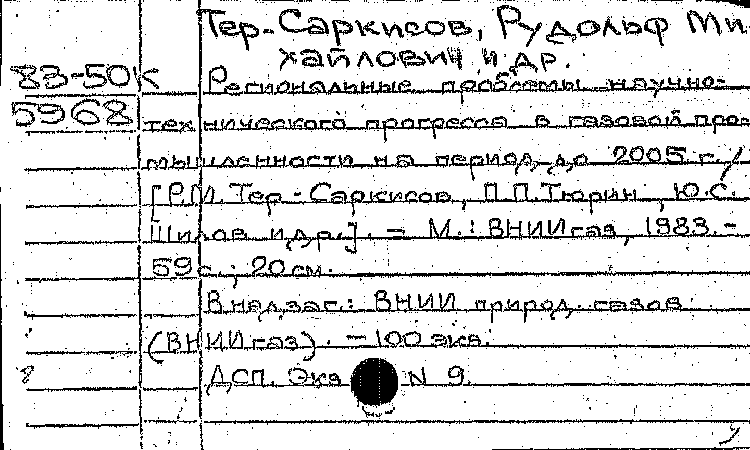 Тер-Саркисов, Рудольф Ми-
хайлович и др.
83-50к Региональные проблемы научно-
5968 технического прогресса в газовой про-
мышленности на период до 2005 г. /
[Р.М. Тер-Саркисов, П.П. Тюрин, Ю.С.
Шилов и др.]. - М.: ВНИИгаз, 1983. -
59 с.; 20 см.
В надзаг.: ВНИИ природ. газов
(ВНИИгаз). - 100 экз.
ДСП. Экз N 9.